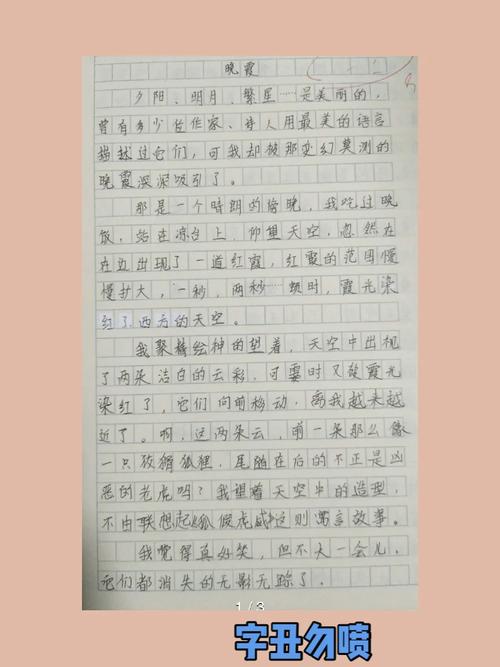 晚霞
夕阳、明月、繁星……是美丽的,
曾有多少位作家、诗人用最美的语言
描述过它们,可我却被那变幻莫测的
晚霞深深吸引了。
那是一个晴朗的傍晚,我吃过晚
饭,站在凉台上,仰望天空,忽然在
在边出现了一道红霞,红霞的范围慢
慢扩大,一秒,两秒……顿时,霞光染
红了西方的天空。
我聚精绘神的望着,天空中出现
了两朵洁白的云彩,可霎时又被霞光
染红了,它们向前移动,离我越来越
近了。啊,这两朵云,前一朵那么像
一只狡猾狐狸,尾随在后的不正是凶
恶的老虎吗?我望着天空中的造型,
不由联想起《狐假虎威》这则寓言故事。
我觉得真好笑,但不大一会儿,
它们都消失的无影无踪了。
1/3
字丑勿喷